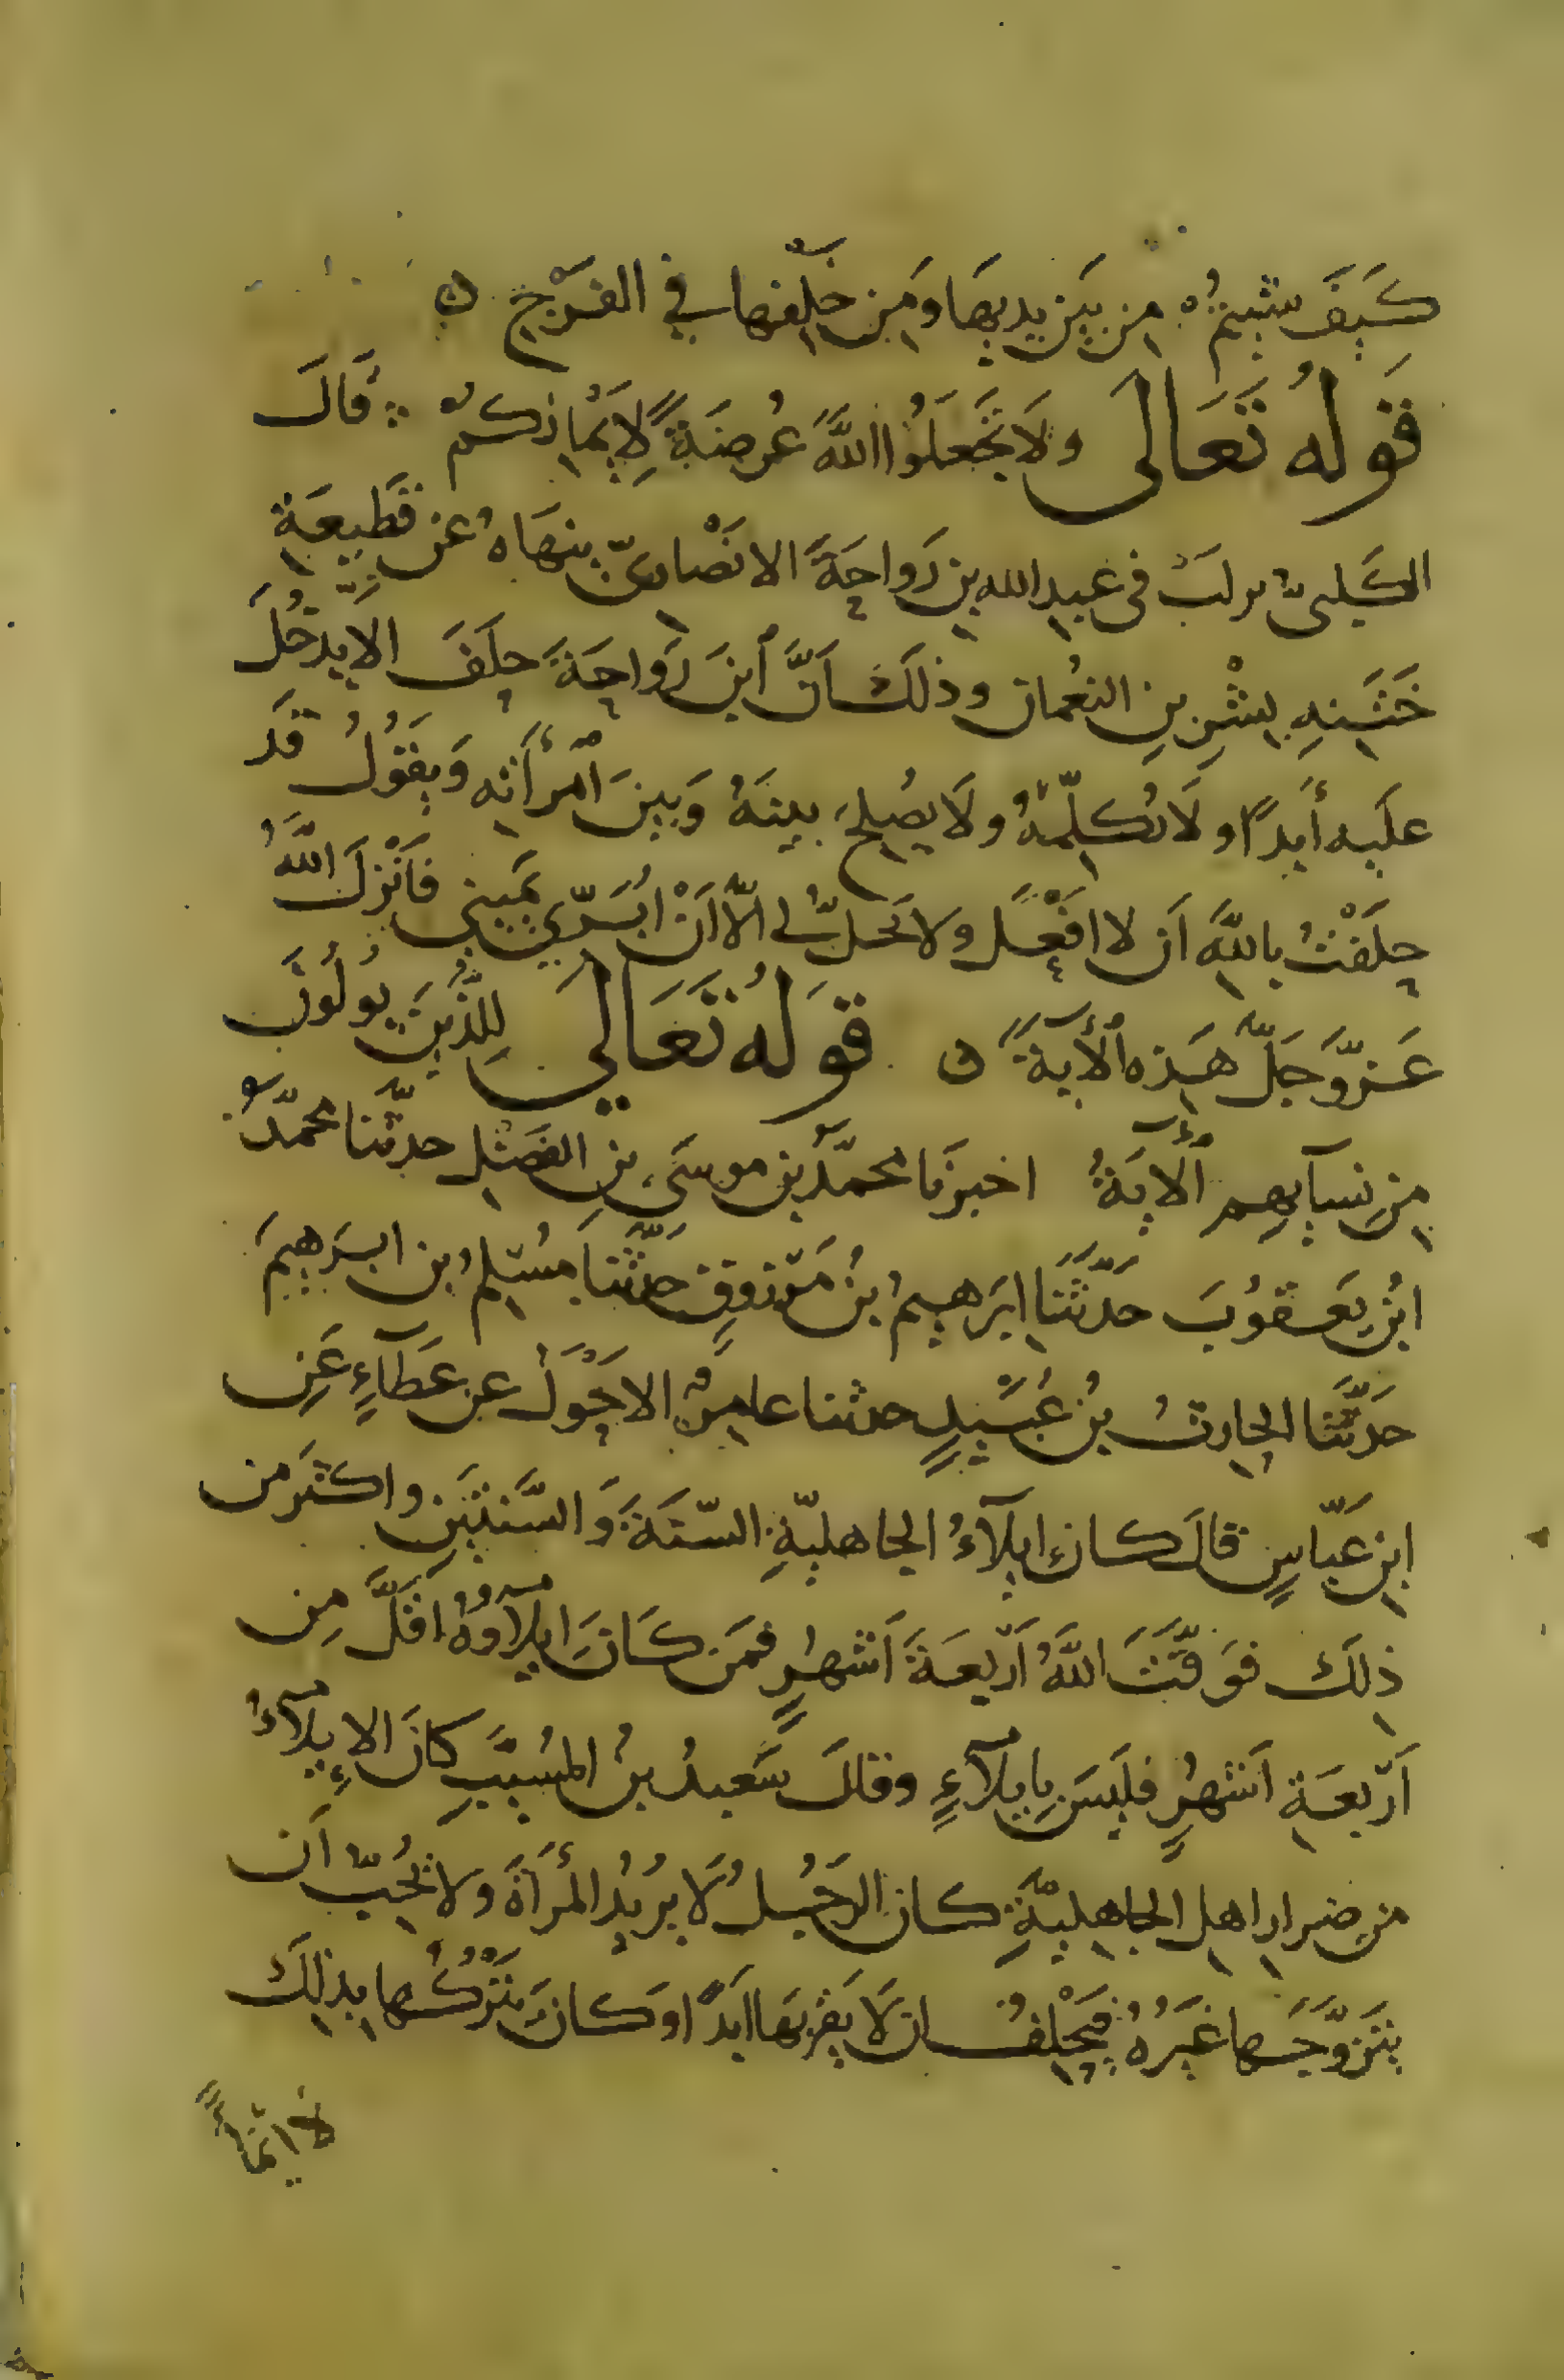 كَيفَ شيتمُ من بَين يديهَا ومِن خلفها في الفَرْج ه
قَولهُ تَعَالىَ ولَا تَجعَلُوا اللهَ عُرضَةً لِايمانكم ∴ قالَ
الكلبىُّ نزلَتْ فى عبدِ الله بن رَواحَةَ الانصارىّ ينهَاهُ عن قَطِيعَةِ
خَتَنِهِ بِشْرِ بنِ النعُمان وذلكَ أنَّ ٱبنَ رَواحَةَ حلَفَ الّا يدخُلَ
علَيه أَبدًا ولَا يُكلّمهُ ولا يصُلحَ بينهُ وَبينَ امرأته وَيقَوُلُ قَد
حلَفْتُ باللهِ أن لا افْعَل ولا يَحلُّ لى الّا أَنْ ابُرَّ فى يمينى فَأنزلَ اللهُ
عَزَّ وَجلَّ هَذه ٱلأيةَ ه قولهُ تَعَالىَ للِّذينَ يوُلُونَ
مِن نسآيهِم ٱلايَةُ اخبرَنا محمدُ بن موسَى بنِ الفَضْلِ حدثّنا محمدُّ
ابُن يَعقوُبَ حَدَّثَنَا ابرَهيمُ بنُ مَرْزوقٍ حدَّثَنا مُسْلمُ بن ابرَهيمَ
حَدثَّنا الحارثُ بنُ عُبَيْدٍ حدثنا عامِرٌ الاحَوَلُ عن عَطآءٍ عَنِ
ابنِ عَبّاسٍ قالَ كانَ ايلآءُ الجاهليّةِ السّنَةَ وَالسَّنتيَنِ واكثَر من
ذلكَ فوَقّتَ اللهُ اَرْبعَةَ اَشهُرٍ فمَن كَانَ ايلآوُهُ اقَلَّ مِن
اَرْبعَةِ اَشهُرٍ فليَسَ بِايلآءٍ وقالَ سَعيدُ بنُ المُسيَّبِ كانَ الاِيلآءُ
من ضرارِ اهلِ الجاهِليّةِ كان الرجُلُ لَا يُريُد المرأَةَ ولا يُحُبّ أن
يتَزوَّجَها غَيرُهُ فيَحْلفُ ان لَا يقَربَها ابَدًا وكانَ يَترُكُها بذلكَ
لا ايّمًا